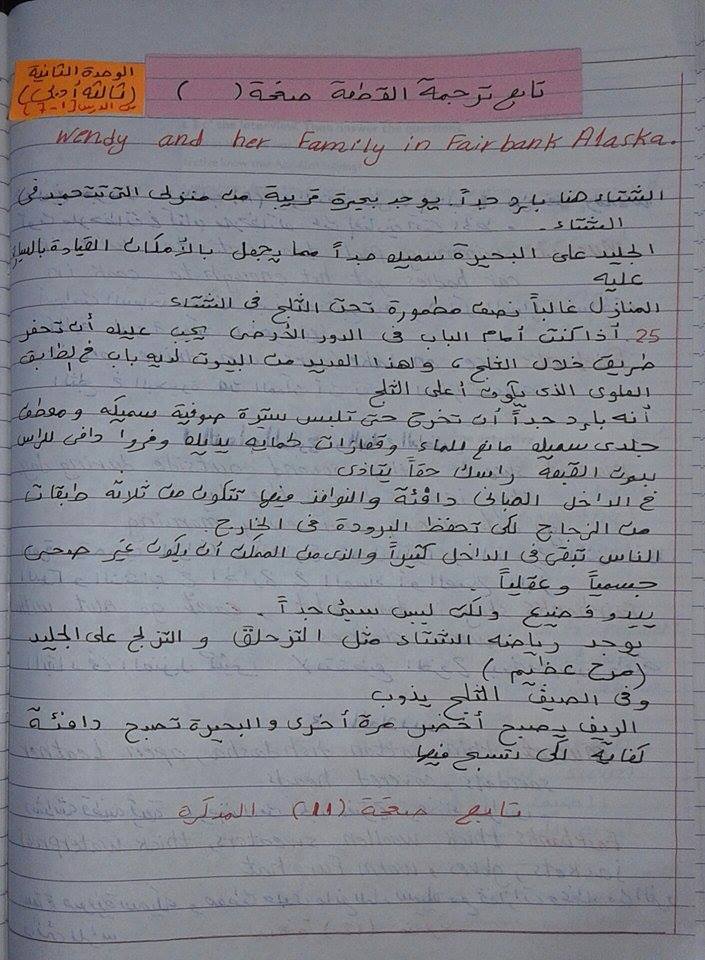 الوحدة الثانية
(ثالثه أدبى)
من الدرس [1-7]
تابع ترجمة القطعة صفحة ( )
Wendy and her Family in Fairbank Alaska.
الشتاء هنا بارد جداً يوجد بحيرة قريبة من منزلى التى تتجمد فى
الشتاء.
الجليد على البحيرة سميك جداً مما يجعل بالأمكان القيادة بالسيارة
عليه
المنازل غالباً نصف مطمورة تحت الثلج فى الشتاء
25 أذا كنت أمام الباب فى الدور الأرضى يجب عليك أن تحفر
طريق خلال الثلج، ولهذا العديد من البيوت لديه باب فى الطابق
العلوى الذى يكون أعلى الثلج
أنه بارد جداً أن تخرج حتى تلبس سترة صوفية سميكه ومعطف
جلدى سميك مانع للماء وقفازات طمايه يديك وفروا دافى للراس
بدون القبعة راسك حقاً يتاذى
فى الداخل المبانى دافئة والنوافذ فيها تتكون من ثلاثه طبقات
من الزجاج لكى تحفظ البرودة فى الخارج
الناس تبقى فى الداخل كثيراً والذى من الممكن أن يكون غير صحى
جسمياً وعقلياً.
يبدو فضيع ولكن ليس سيئ جداً.
يوجد رياضه الشتاء مثل التزحلق و التزلج على الجليد
(مرح عظيم)
وفى الصيف الثلج يذوب
الريف يصبح أخضر مرة أخرى والبحيرة تصبح دافئة
كفاية لكى تسبح فيها
تابع صفحة (11) المذكرة